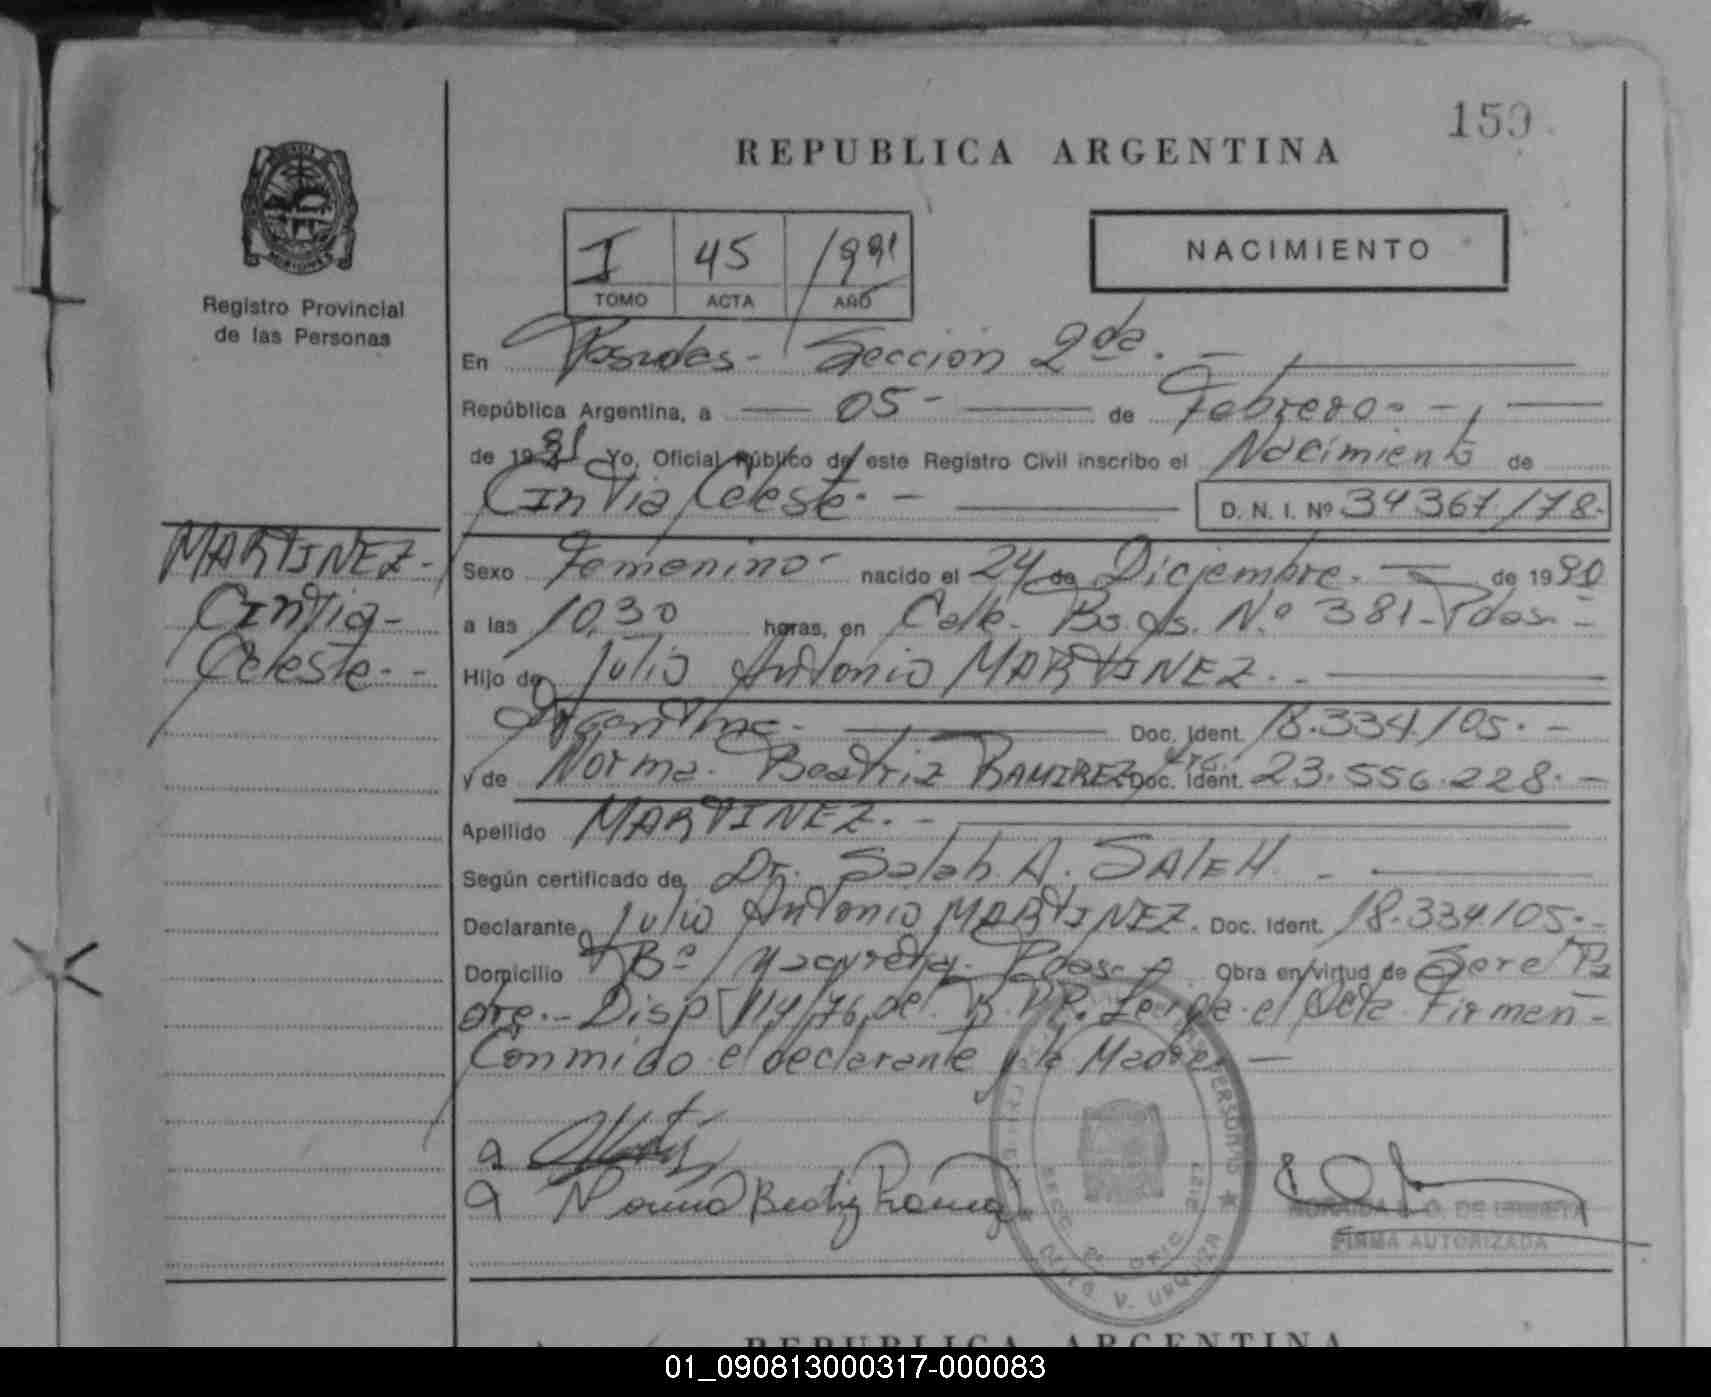 159
REPUBLICA ARGENTINA
I 45 1991
TOMO ACTA AÑO
NACIMIENTO
Registro Provincial
de las Personas
En Posadas - Sección 2da. -
República Argentina, a 05 - de Febrero - -
de 1991 Yo, Oficial Público de este Registro Civil inscribo el Nacimiento de
Cintia Celeste. - D. N. I. Nº 34367.178.
MARTINEZ. -
Cintia -
Celeste. - -
Sexo Femenino - nacido el 24 de Diciembre. - de 1990
a las 10,30 horas, en Calle. Bs. As. N.º 381 - Pdas. -
Hijo de Julio Antonio MARTINEZ. -
Argentino. - Doc. Ident. 18.334.105. -
y de Norma Beatriz RAMIREZ Arg. Doc. Ident. 23.556.228. -
Apellido MARTINEZ. -
Según certificado de Dr. Salah A. SALEH. -
Declarante Julio Antonio MARTINEZ. Doc. Ident. 18.334.105. -
Domicilio Bº Yacyreta. Pdas. Obra en virtud de Ser el Pa
dre. - Disp 114/76 del R.P.P. Leída el Acta Firman -
Conmigo el declarante y la Madre. -
Norma Beatriz Ramirez
DE URBIETA
FIRMA AUTORIZADA
SECC. 2ª OFIC.
V. URQUIZA
REPUBLICA ARGENTINA
01_090813000317-000083